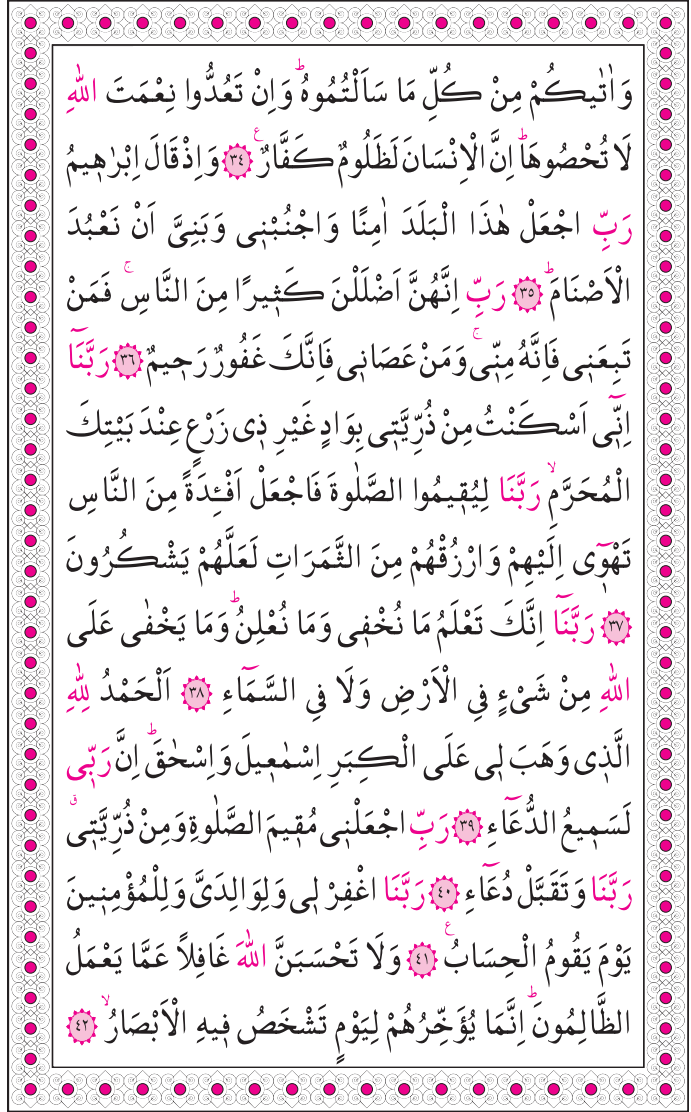 وَاٰتٰيكُمْ مِنْ كُلِّ مَا سَاَلْتُمُوهُۜ وَاِنْ تَعُدُّوا نِعْمَتَ اللّٰهِ
لَا تُحْصُوهَاۜ اِنَّ الْاِنْسَانَ لَظَلُومٌ كَفَّارٌ۟ ﴿٣٤﴾ وَاِذْ قَالَ اِبْرٰه۪يمُ
رَبِّ اجْعَلْ هٰذَا الْبَلَدَ اٰمِنًا وَاجْنُبْن۪ي وَبَنِيَّ اَنْ نَعْبُدَ
الْاَصْنَامَۜ ﴿٣٥﴾ رَبِّ اِنَّهُنَّ اَضْلَلْنَ كَث۪يرًا مِنَ النَّاسِۚ فَمَنْ
تَبِعَن۪ي فَاِنَّهُ مِنّ۪يۚ وَمَنْ عَصَان۪ي فَاِنَّكَ غَفُورٌ رَح۪يمٌ ﴿٣٦﴾ رَبَّنَٓا
اِنّ۪ٓي اَسْكَنْتُ مِنْ ذُرِّيَّت۪ي بِوَادٍ غَيْرِ ذ۪ي زَرْعٍ عِنْدَ بَيْتِكَ
الْمُحَرَّمِۙ رَبَّنَا لِيُق۪يمُوا الصَّلٰوةَ فَاجْعَلْ اَفْـِٔدَةً مِنَ النَّاسِ
تَهْو۪ٓي اِلَيْهِمْ وَارْزُقْهُمْ مِنَ الثَّمَرَاتِ لَعَلَّهُمْ يَشْكُرُونَ
﴿٣٧﴾ رَبَّنَٓا اِنَّكَ تَعْلَمُ مَا نُخْف۪ي وَمَا نُعْلِنُۜ وَمَا يَخْفٰى عَلَى
اللّٰهِ مِنْ شَيْءٍ فِي الْاَرْضِ وَلَا فِي السَّمَٓاءِ ﴿٣٨﴾ اَلْحَمْدُ لِلّٰهِ
الَّذ۪ي وَهَبَ ل۪ي عَلَى الْكِبَرِ اِسْمٰع۪يلَ وَاِسْحٰقَۜ اِنَّ رَبّ۪ي
لَسَم۪يعُ الدُّعَٓاءِ ﴿٣٩﴾ رَبِّ اجْعَلْن۪ي مُق۪يمَ الصَّلٰوةِ وَمِنْ ذُرِّيَّت۪يۗ
رَبَّنَا وَتَقَبَّلْ دُعَٓاءِ ﴿٤٠﴾ رَبَّنَا اغْفِرْ ل۪ي وَلِوَالِدَيَّ وَلِلْمُؤْمِن۪ينَ
يَوْمَ يَقُومُ الْحِسَابُ۟ ﴿٤١﴾ وَلَا تَحْسَبَنَّ اللّٰهَ غَافِلًا عَمَّا يَعْمَلُ
الظَّالِمُونَۜ اِنَّمَا يُؤَخِّرُهُمْ لِيَوْمٍ تَشْخَصُ ف۪يهِ الْاَبْصَارُۙ ﴿٤٢﴾